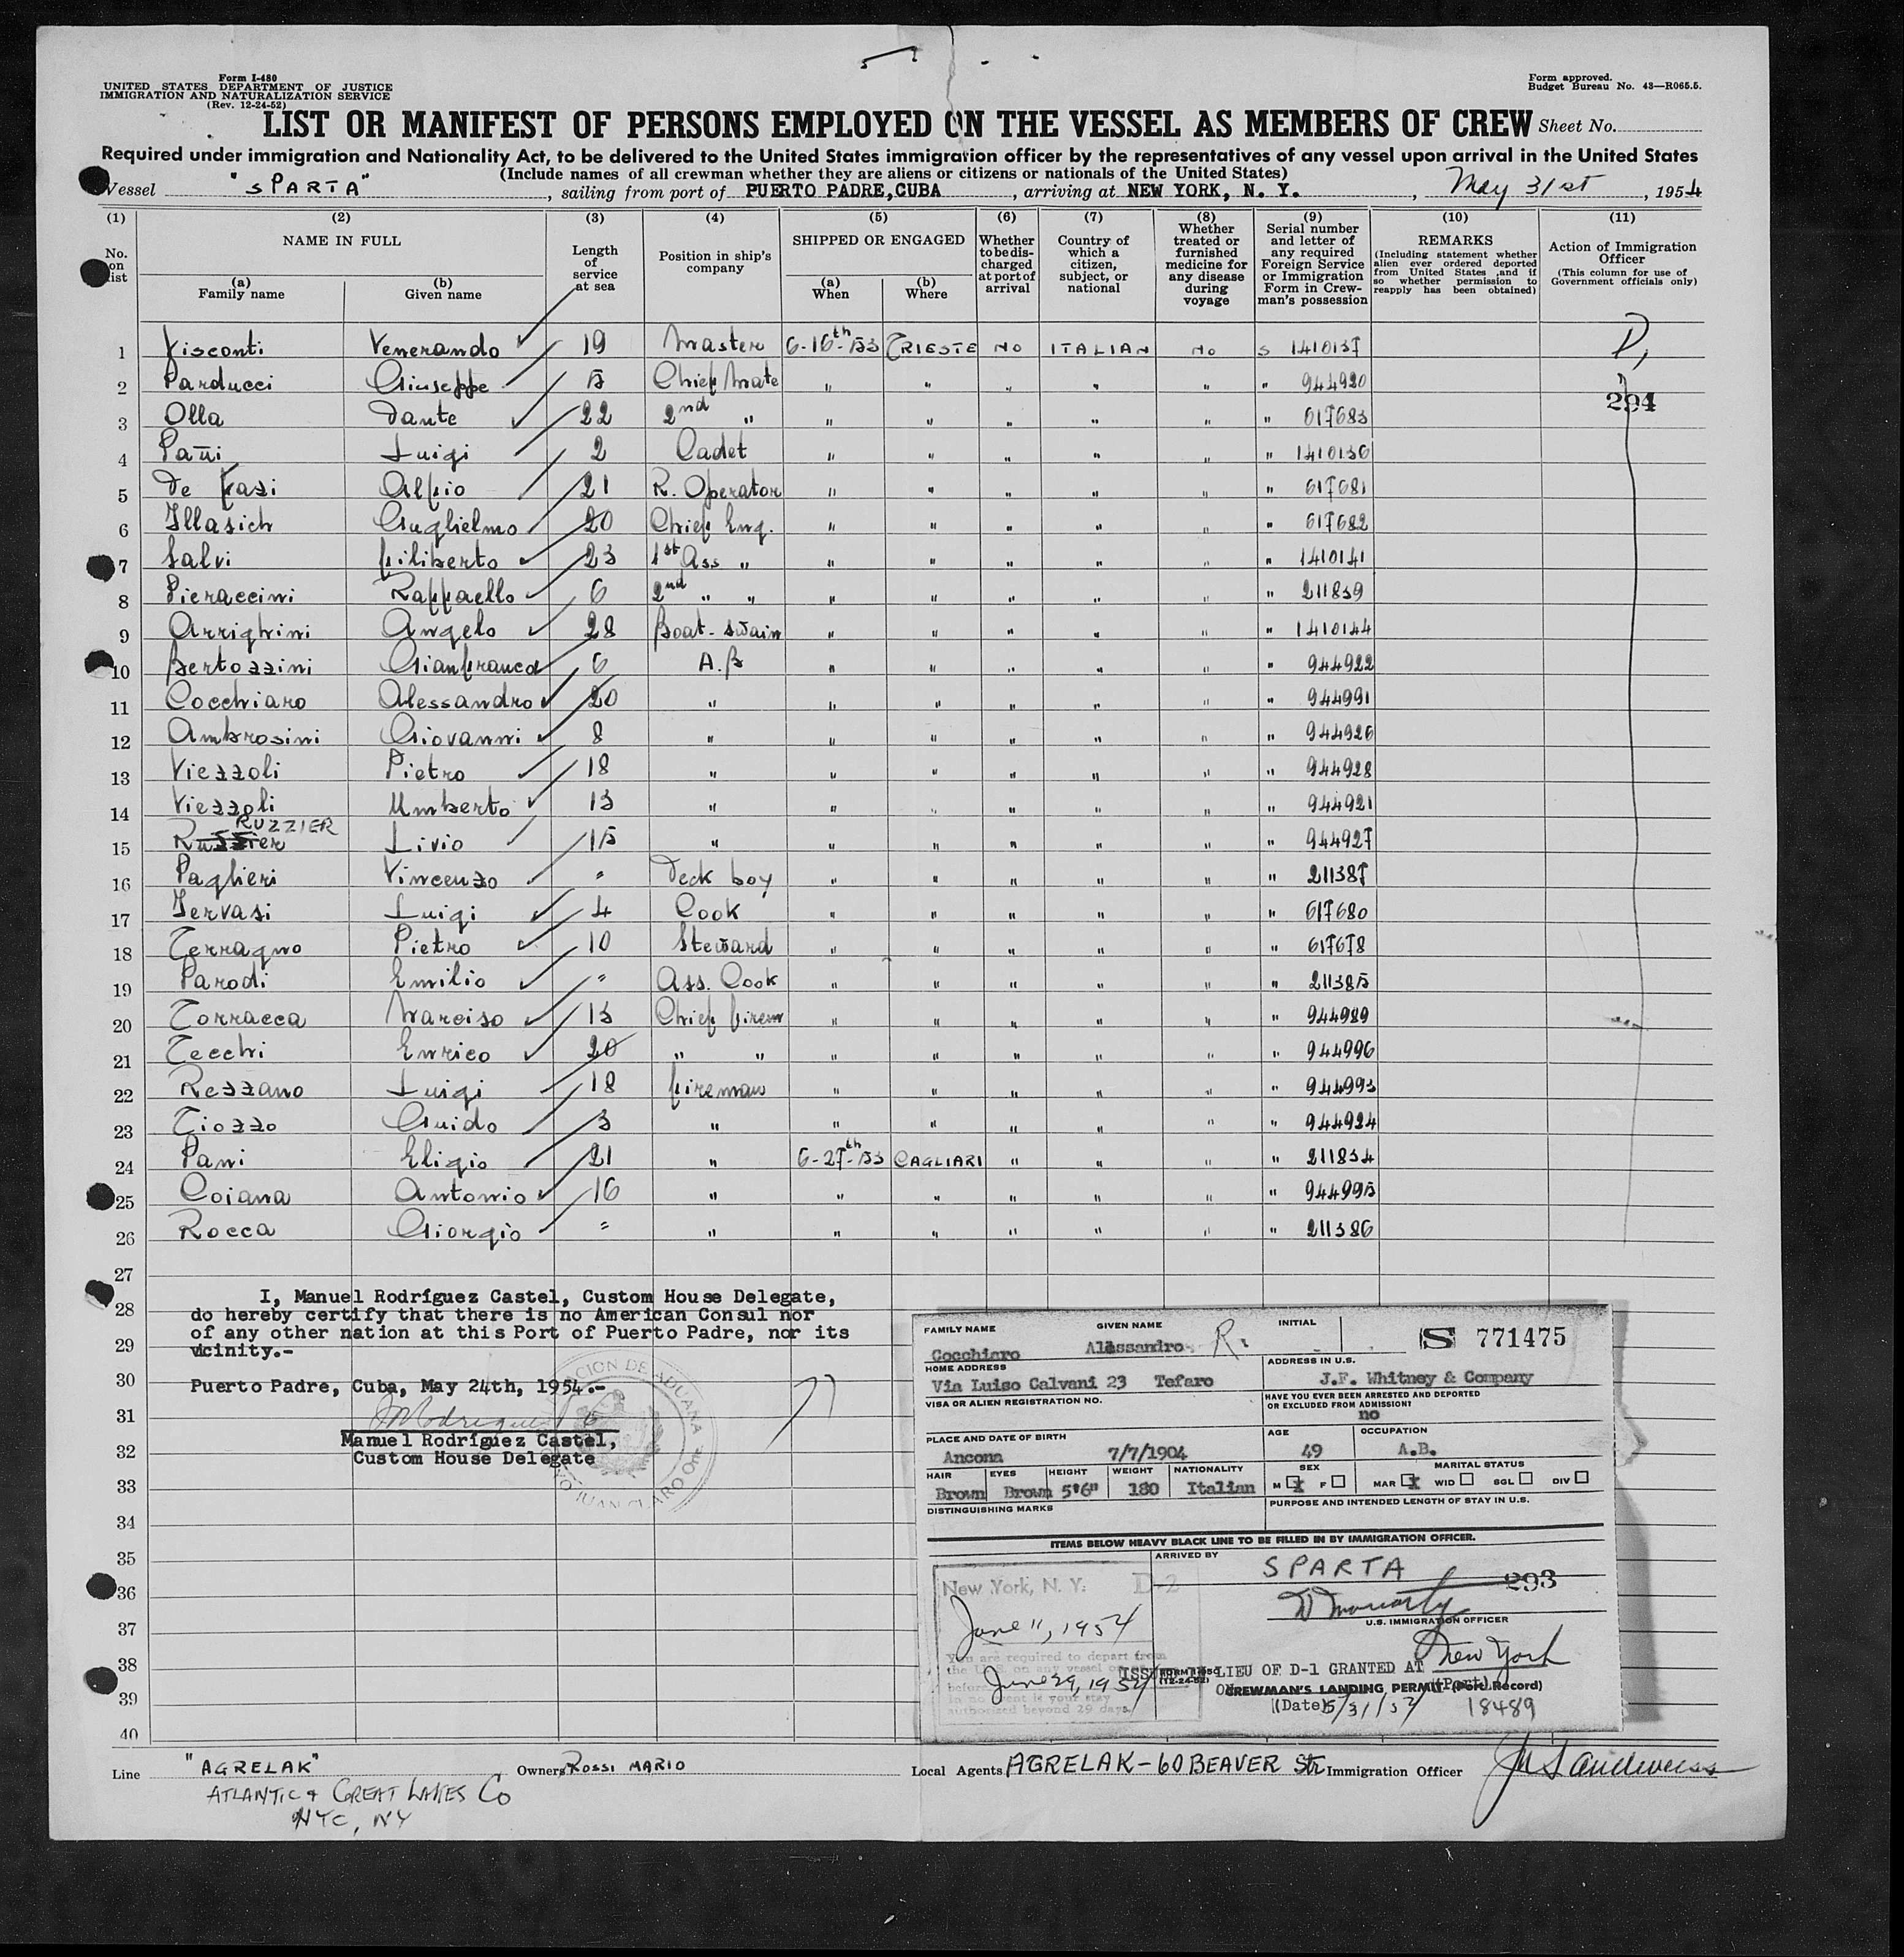 Form I-480
UNITED STATES DEPARTMENT OF JUSTICE
IMMIGRATION AND NATURALIZATION SERVICE
(Rev. 12-24-52)
Form approved.
Budget Bureau No. 43—R065.5.
LIST OR MANIFEST OF PERSONS EMPLOYED ON THE VESSEL AS MEMBERS OF CREW Sheet No.
Required under immigration and Nationality Act, to be delivered to the United States immigration officer by the representatives of any vessel upon arrival in the United States
(Include names of all crewman whether they are aliens or citizens or nationals of the United States)
Vessel "SPARTA", sailing from port of PUERTO PADRE, CUBA, arriving at NEW YORK, N. Y., May 31st, 1954
(1) (2) (3) (4) (5) (6) (7) (8) (9) (10) (11)
No. on list
NAME IN FULL
(a) Family name
(b) Given name
Length of service at sea
Position in ship's company
SHIPPED OR ENGAGED
(a) When
(b) Where
Whether to be discharged at port of arrival
Country of which a citizen, subject, or national
Whether treated or furnished medicine for any disease during voyage
Serial number and letter of any required Foreign Service or Immigration Form in Crewman's possession
REMARKS
(Including statement whether alien ever ordered deported from United States and if so whether permission to reapply has been obtained)
Action of Immigration Officer
(This column for use of Government officials only)
1 Visconti Venerando 19 Master 6-16th-53 TRIESTE NO ITALIAN No S 1410137 D,
2 Parducci Giuseppe 5 Chief Mate " " " " " " 944920
294
3 Olla Dante 22 2nd " " " " " " " 617683
4 Luigi 2 Cadet " " " " " " 1410136
5 De Fazi Alfio 21 R. Operator " " " " " " 617681
6 Illasich Guglielmo 20 Chief Eng. " " " " " " 617682
7 Salvi Filiberto 23 1st Ass " " " " " " " 1410141
8 Pieraccini Raffaello 6 2nd " " " " " " " " 211839
9 Arrighini Angelo 28 Boat-swain " " " " " " 1410144
10 Bertozzini Gianfranco 6 A.B " " " " " " 944922
11 Cocchiaro Alessandro 20 " " " " " " " 944991
12 Ambrosini Giovanni 8 " " " " " " " 944926
13 Viezzoli Pietro 18 " " " " " " " 944928
14 Viezzoli Umberto 13 " " " " " " " 944921
RUZZIER
15 Livio 15 " " " " " " " 944927
16 Paglieri Vincenzo " Deck boy " " " " " " 211387
17 Iervasi Luigi 4 Cook " " " " " " 617680
18 Terragno Pietro 10 Steward " " " " " " 617678
19 Parodi Emilio " Ass. Cook " " " " " " 211385
20 Torracca Narciso 13 Chief firem " " " " " " 944989
21 Tecchi Enrico 20 " " " " " " " " 944996
22 Rezzano Luigi 18 fireman " " " " " " 944993
23 Tiozzo Guido 3 " " " " " " " 944924
24 Pani Eligio 21 " 6-27th-53 CAGLIARI " " " " 211834
25 Coiana Antonio 16 " " " " " " " 944995
26 Rocca Giorgio " " " " " " " " 211386
27
28
29
30
31
32
33
34
35
36
37
38
39
40
I, Manuel Rodríguez Castel, Custom House Delegate,
do hereby certify that there is no American Consul nor
of any other nation at this Port of Puerto Padre, nor its
vicinity.-
Puerto Padre, Cuba, May 24th, 1954.-
Manuel Rodríguez Castel,
Custom House Delegate
FAMILY NAME GIVEN NAME INITIAL
Cocchiaro Alessandro R. S 771475
HOME ADDRESS ADDRESS IN U.S.
Via Luiso Calvani 23 Tefaro J.F. Whitney & Company
VISA OR ALIEN REGISTRATION NO. HAVE YOU EVER BEEN ARRESTED AND DEPORTED
OR EXCLUDED FROM ADMISSION?
no
PLACE AND DATE OF BIRTH AGE OCCUPATION
Ancona 7/7/1904 49 A.B.
HAIR EYES HEIGHT WEIGHT NATIONALITY SEX MARITAL STATUS
Brown Brown 5'6" 180 Italian M X F MAR X WID SGL DIV
DISTINGUISHING MARKS PURPOSE AND INTENDED LENGTH OF STAY IN U.S.
ITEMS BELOW HEAVY BLACK LINE TO BE FILLED IN BY IMMIGRATION OFFICER.
ARRIVED BY SPARTA
New York, N. Y. D-2
293
U.S. IMMIGRATION OFFICER
June 11, 1954
You are required to depart from
the U.S. on any vessel on or
before June 29, 1954
In no event is your stay
authorized beyond 29 days.
ISSUED IN LIEU OF D-1 GRANTED AT New York
ON (Port)
CREWMAN'S LANDING PERMIT (Port Record)
(Date) 5/31/54 18489
Line "AGRELAK" Owners ROSSI MARIO Local Agents AGRELAK-60 BEAVER Str Immigration Officer
ATLANTIC & GREAT LAKES Co
NYC, NY